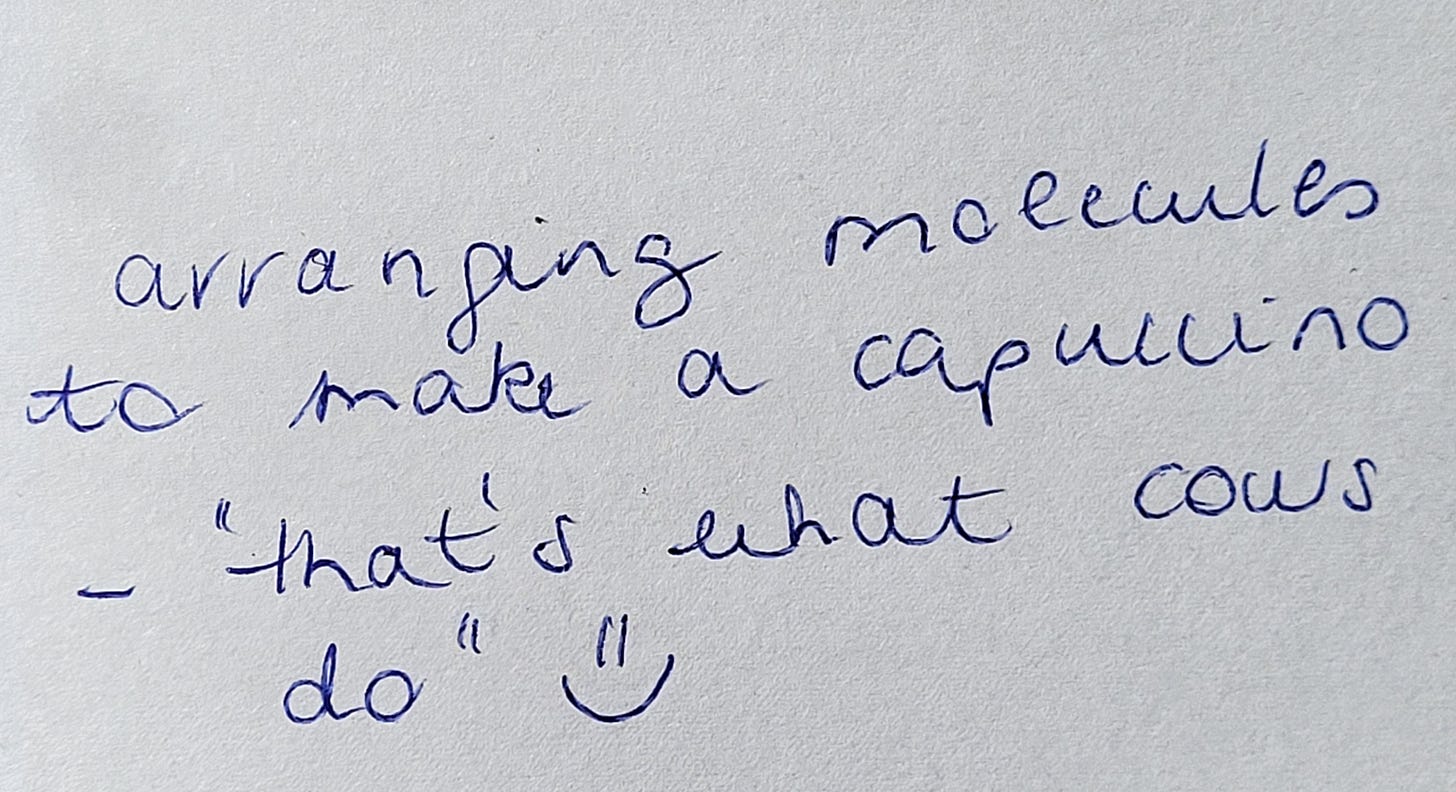 arranging molecules
to make a capuccino
- "that's what cows
do" :)